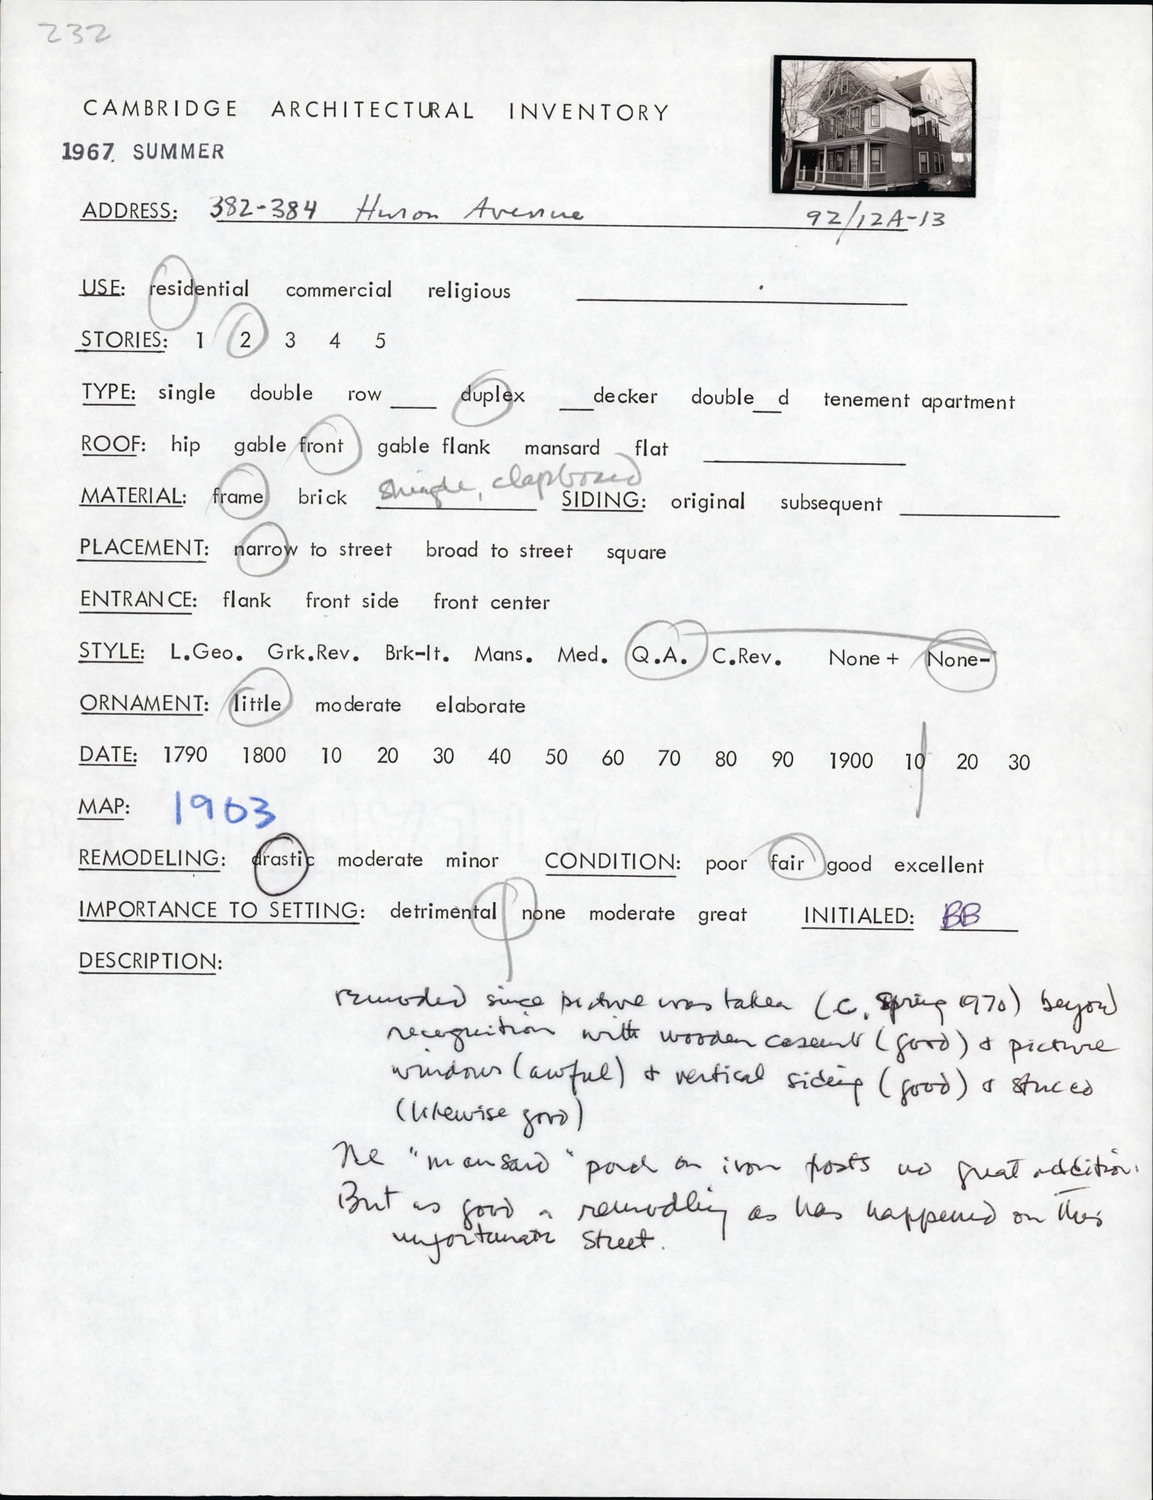 232
CAMBRIDGE ARCHITECTURAL INVENTORY
1967 SUMMER
ADDRESS: 382-384 Huron Avenue 92/12A-13
USE: residential commercial religious
STORIES: 1 2 3 4 5
TYPE: single double row ___ duplex ___decker double__d tenement apartment
ROOF: hip gable front gable flank mansard flat
MATERIAL: frame brick shingle, clapboard SIDING: original subsequent
PLACEMENT: narrow to street broad to street square
ENTRANCE: flank front side front center
STYLE: L.Geo. Grk.Rev. Brk-It. Mans. Med. Q.A. C.Rev. None + None-
ORNAMENT: little moderate elaborate
DATE: 1790 1800 10 20 30 40 50 60 70 80 90 1900 10 20 30
MAP: 1903
REMODELING: drastic moderate minor CONDITION: poor fair good excellent
IMPORTANCE TO SETTING: detrimental none moderate great INITIALED: BB
DESCRIPTION:
remoded since picture was taken (c. Spring 1970) beyond
recognition with wooden casement (good) & picture
windows (awful) & vertical siding (good) & stucco
(likewise good)
The "mansard" porch on iron posts no great addition.
But as good a remodling as has happened on this
unfortunate street.